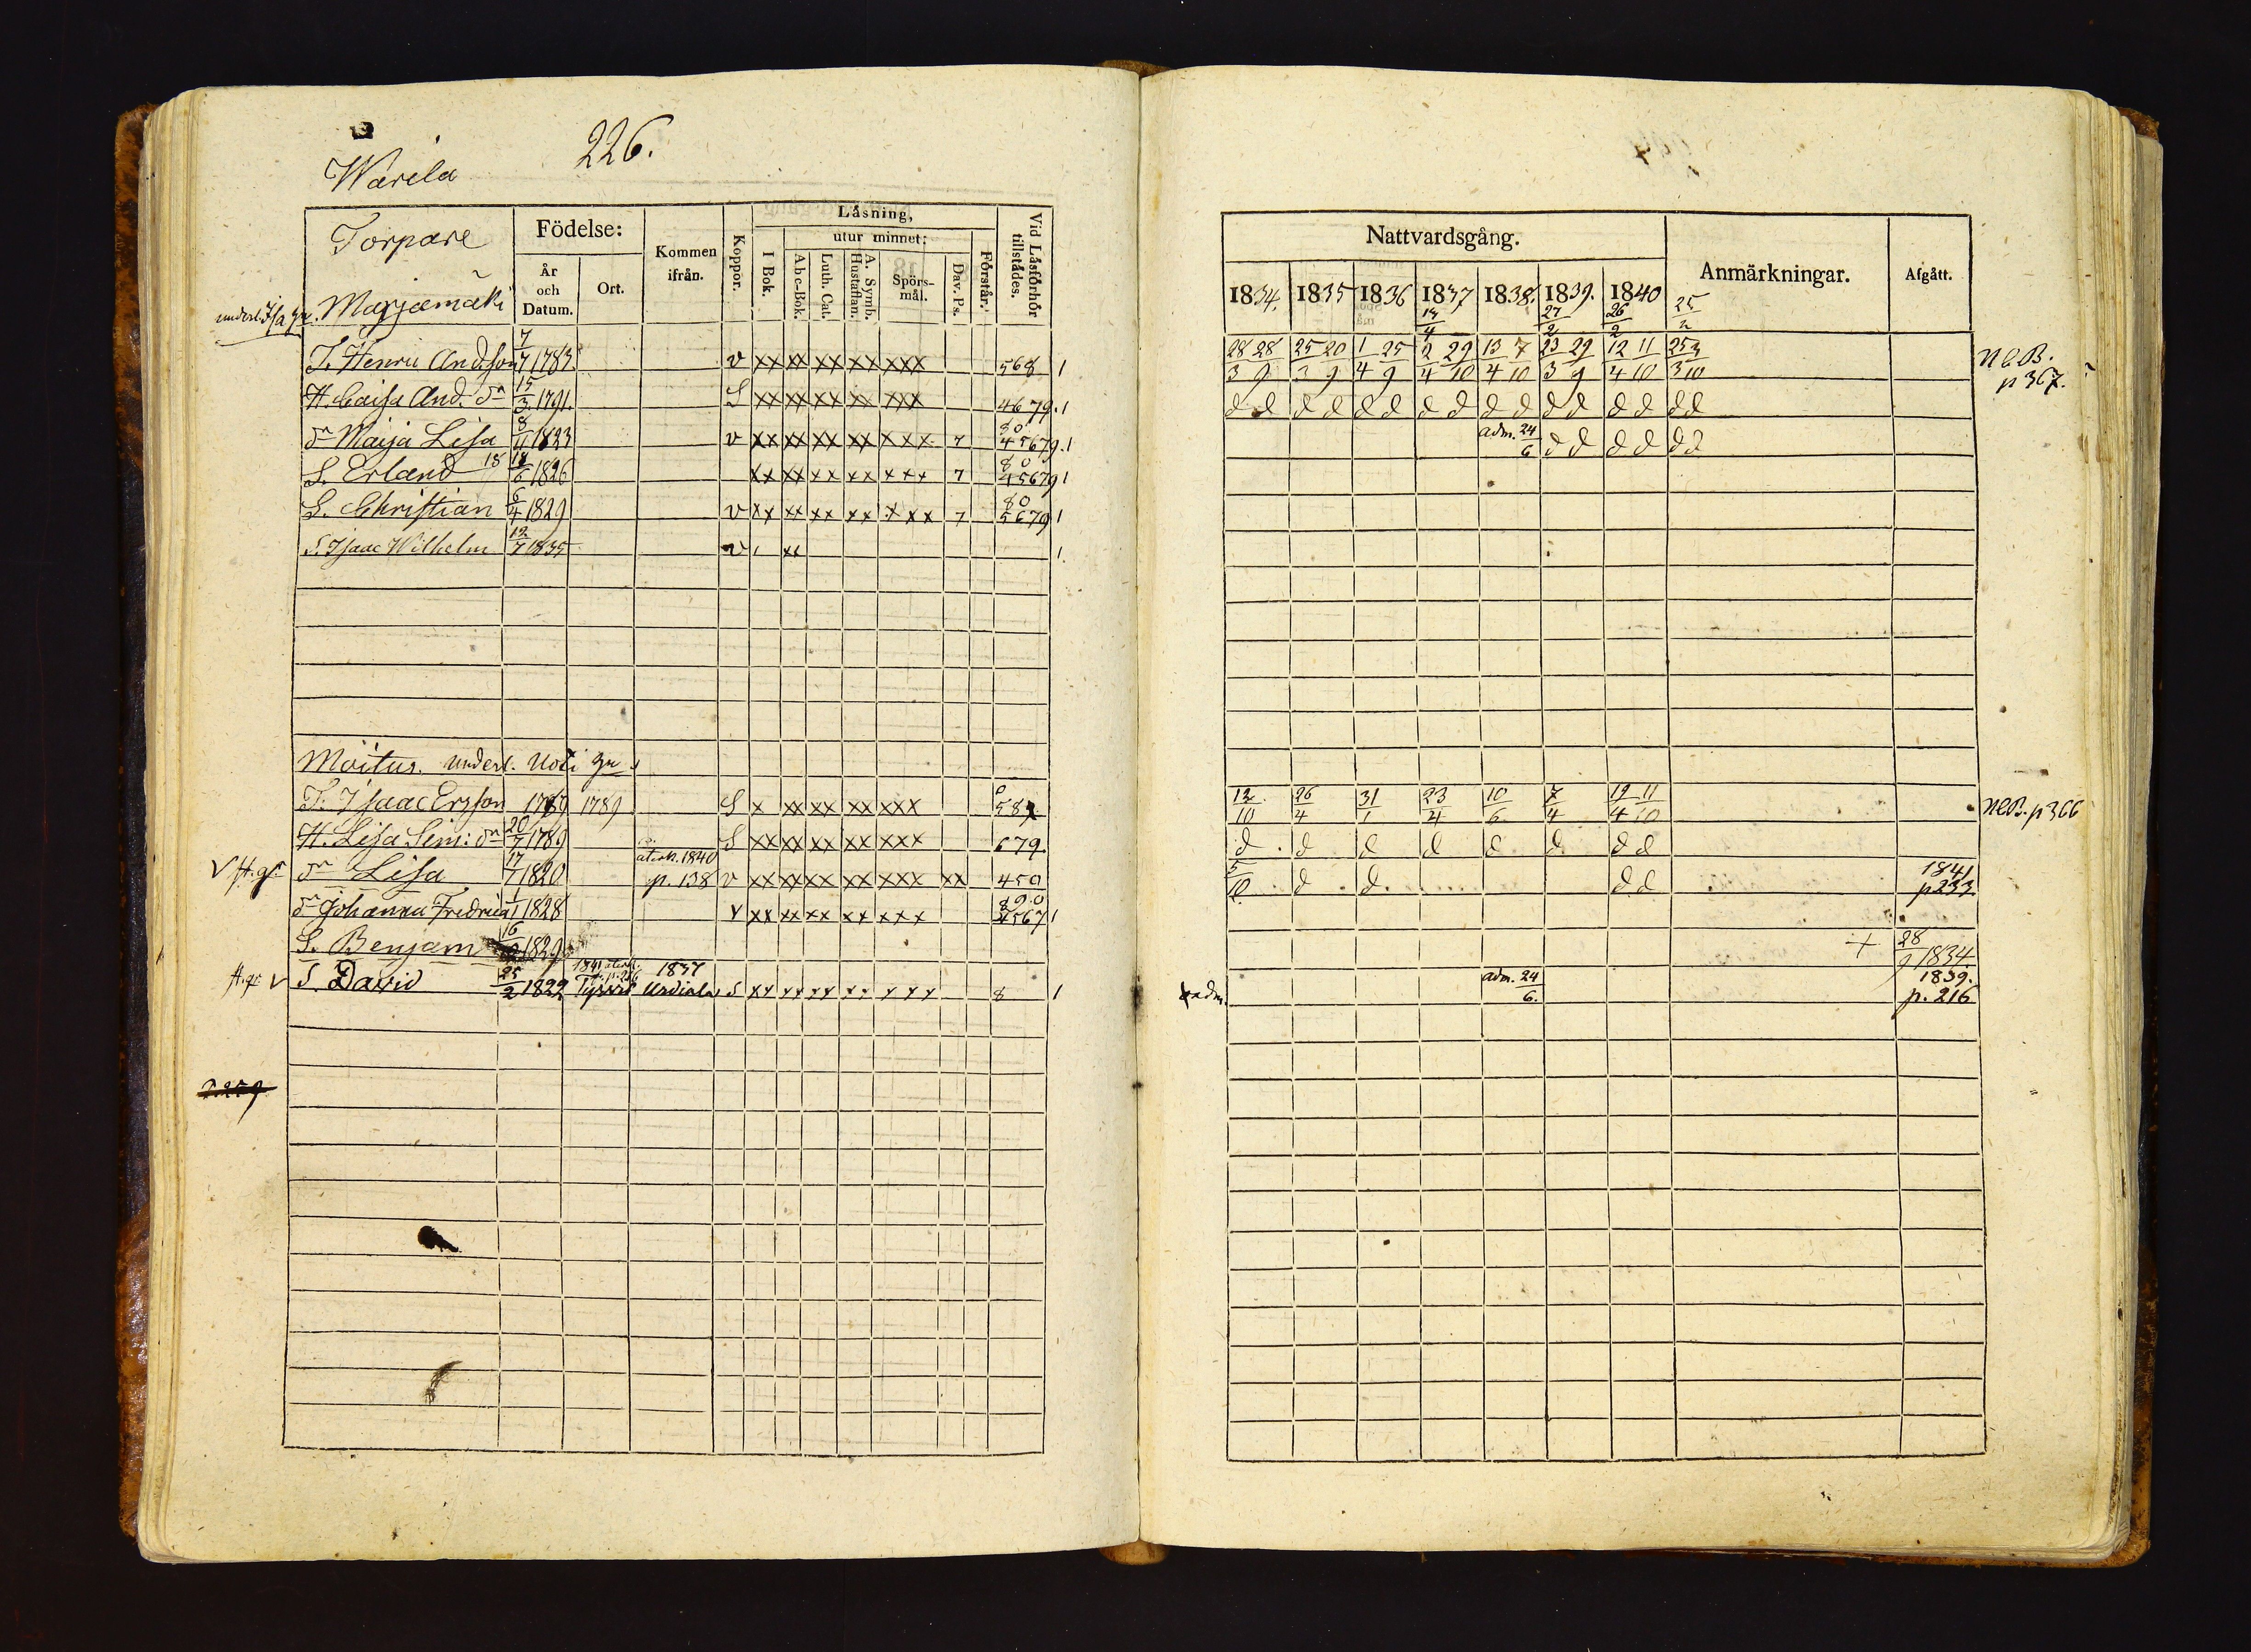 226.
Warila
Torpare
Födelse:
Kommen ifrån.
Koppor.
Låsning,
I Bok.
utur minnet:
A b c-Bok.
Luth. Cat.
A. Symb. Hustaflan.
Spörs-mål.
Dav. Ps.
Förstår.
Vid Låsförhör tillstådes.
År och Datum.
Ort.
underl. Isa gu. Marjamäki
T. Henric Andsson 7/7 1783. v xx xx xx xx xxx 568 1
H. Caisa And. dr 15/3 1791. S xx xx xx xx xxx 4679. 1
dr Maija Lisa 8/11 1823 v xx xx xx xx xxx 7 80 45679. 1
S. Erland 18 18/6 1826 xx xx xx xx xxx 7 80 45679 1
S. Christian 6/4 1829 v xx xx xx xx xxx 7 80 5679 1
S. Isaac Wilhelm 12/7 1835 v 1 xx 1.
Moitus. underl. Uoti gu
T. Isaac Ersson 1789 1789 S x xx xx xx xxx 0 58
H. Lisa Sim: dr 20/7 1789 S xx xx xx xx xxx 679.
v H. gr dr Lisa 17/7 1820 återk. 1840 p. 138 v xx xx xx xx xxx xx 450
dr Johanna Fredrica 1/1 1828 v xx xx xx xx xxx 890 4567 1
S. Benjam 16 1829
H. gr v S. David 25/2 1822 1841 återk. p. 216 Tyrvis 1837 Urdiala S xx xx xx xx xxx 8 1
Nattvardsgång.
Anmärkningar.
Afgått.
1834. 1835 1836 1837 1838. 1839. 1840
14/4 27/2 26/2 25/2
28/3 28/9 25/3 20/9 1/4 25/9 2/4 29/10 13/4 7/10 23/3 29/9 12/4 11/10 25/3 3/10 N.C.B. p 367.
d d d d d d d d d d d d d d d d
adm. 24/6 d d d d d d
12/10 26/4 31/1 23/4 10/6 7/4 12/4 11/10 N.C.B. p 366
d d d d d d d d
5/10 d d d d 1841 p 233.
+ 28/9 1834
adm. adm. 24/6. 1839. p. 216